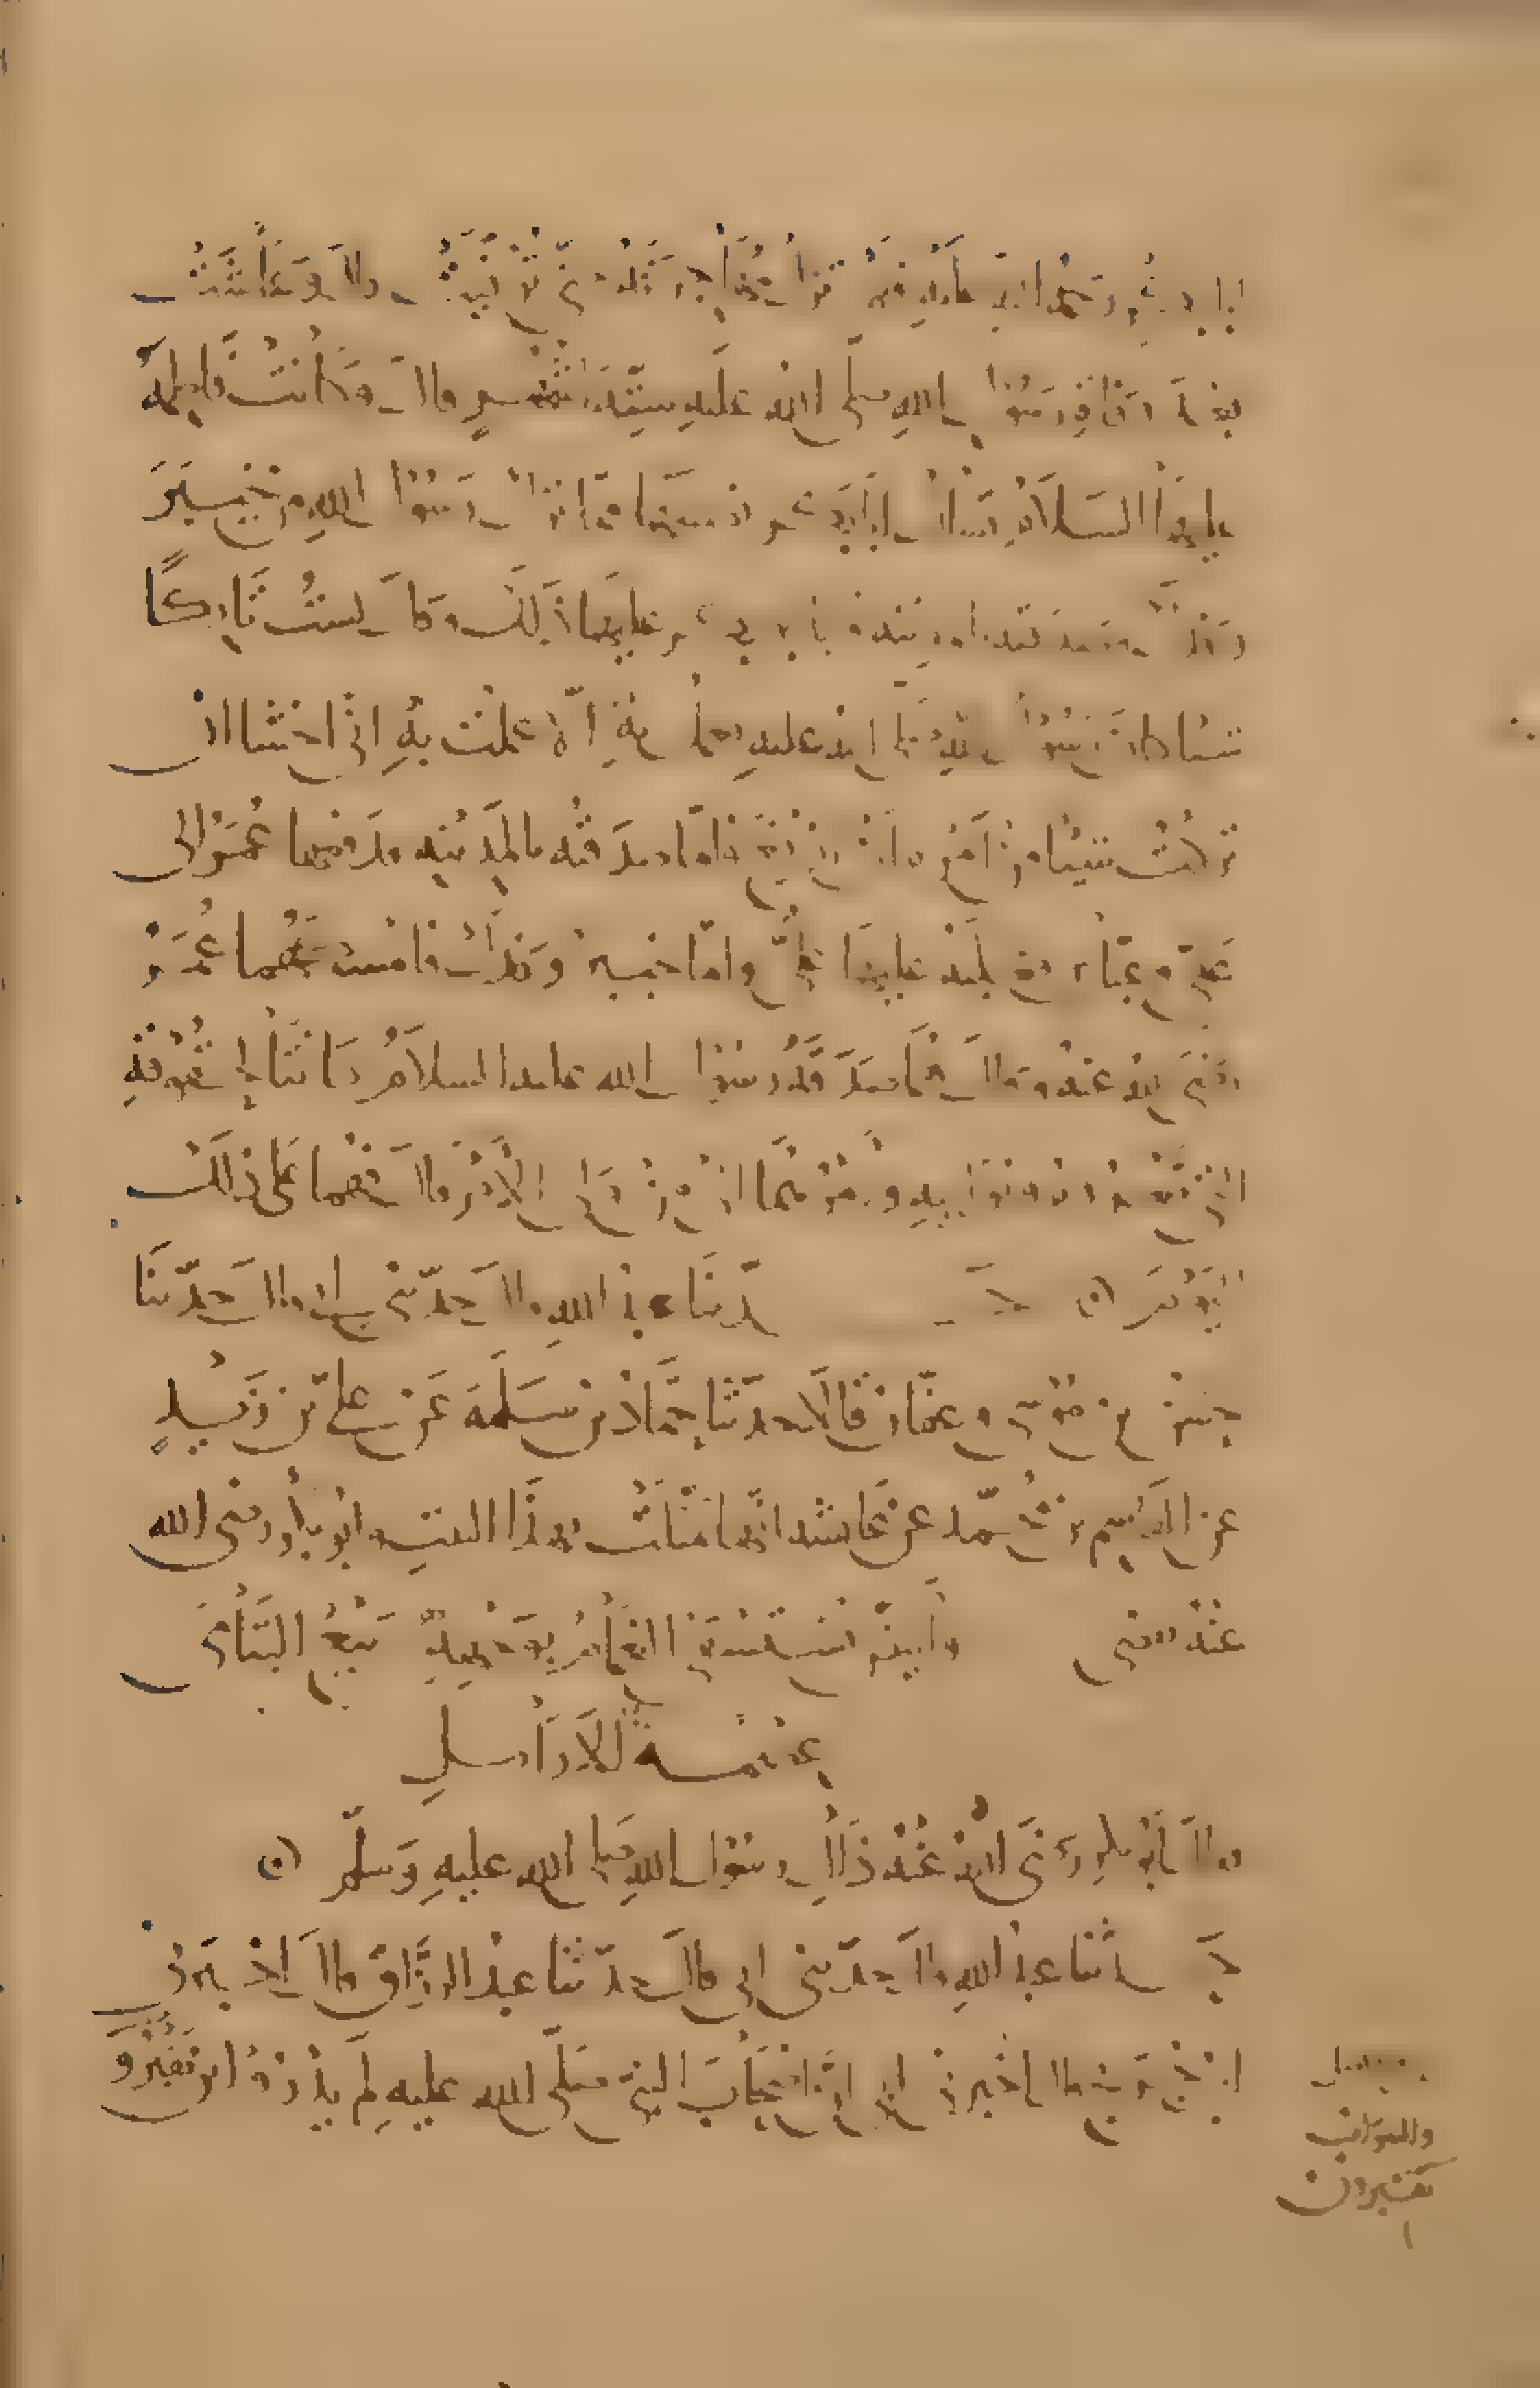 ابا بكر رضي الله عنه فلم تزل مهاجرته حتى توفيت قال وعاشت
بعد وفاة رسول الله صلى الله عليه ستة اشهر قال وكانت فاطمة
عليها السلام تسأل ابا بكر نصيبها مما ترك رسول الله من خيبر
وفدك وصدقته بالمدينة فابى ابو بكر عليها ذلك وقال لست تاركا
شيئا كان رسول الله صلى الله عليه يعمل به الا عملت به اني اخشا ان
تركت شيئا من امره ان ازيغ فاما صدقته بالمدينه فدفعها عمر الى
علي وعباس فغلبه عليها علي واما خيبر وفدك فامسكهما عمر
رضي الله عنه وقال هما صدقة رسول الله عليه السلام كانتا لحقوقه
التي تعروه ونوائبه وامرهما الى من ولي الامر قال فهما على ذلك
اليوم حدثنا عبد الله قال حدثني ابي قال حدثنا
حسن بن موسى وعفان قالا حدثنا حماد بن سلمة عن علي بن زيد
عن القاسم بن محمد عن عائشه انها تمثلت بهذا البيت وابو بكر رضي الله
عنه يقضي وابيض يستسقى الغمام بوجهه ربيع اليتامى
عصمة للارامل
قال ابو بكر رضي الله عنه ذاك رسول الله صلى الله عليه وسلم
حدثنا عبد الله قال حدثني ابي قال حدثنا عبد الرزاق قال اخبرني
ابن جريج قال اخبرني ابي ان اصحاب النبي صلى الله عليه لم يدروا اين يقبروا
والصواب
يقبرون